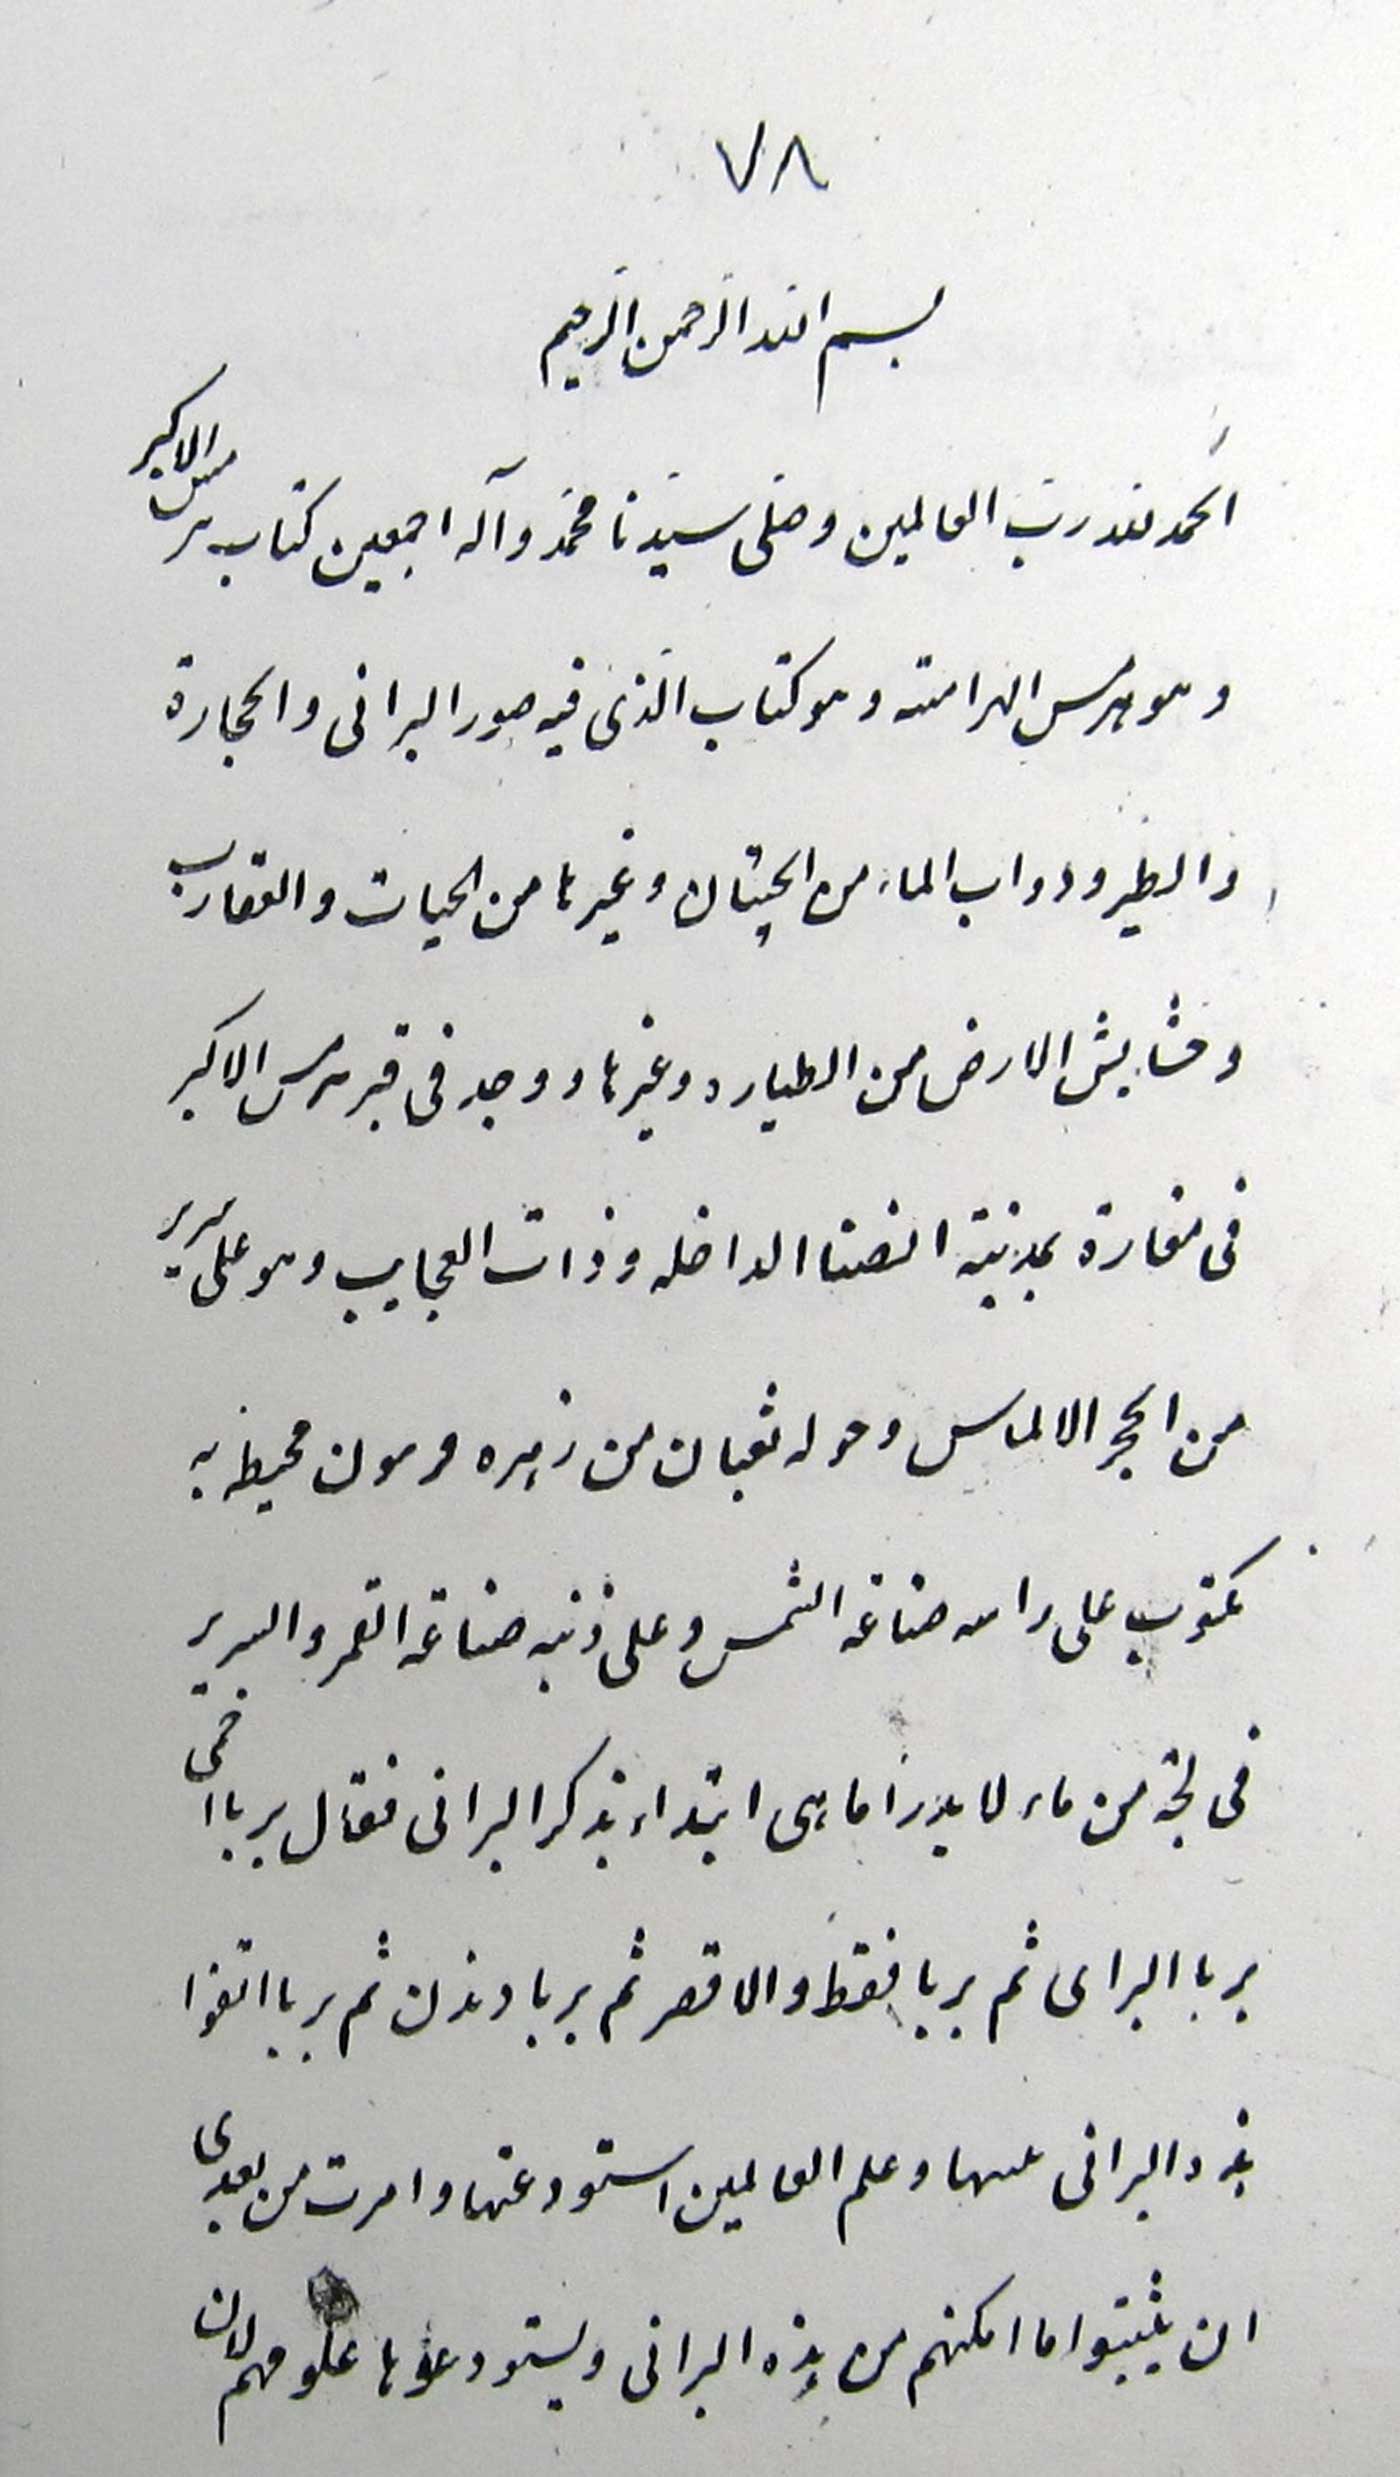 ٧٨
بسم الله الرحمن الرحيم
الحمد لله رب العالمين وصلى سيدنا محمد وآله اجمعين كتاب هرمس الاكبر
وهو هرمس الهرامسه وهو كتاب الذى فيه صور البرانى والحجارة
والطير ودواب الماء من الحيتان وغيرها من الحيات والعقارب
وحشايش الارض من الطياره وغيرها ووجد فى قبر هرمس الاكبر
فى مغارة بمدينة انصنا الداخله وذات العجايب وهو على سرير
من الحجر الالماس وحوله ثعبان من زمرده محيطه به
مكتوب على راسه صناعه الشمس وعلى ذنبه صناعه القمر والسرير
فى لجة من ماء لا يدرا ما هى ابتداء بذكر البرانى فقال بربا اخمى
بربا البراى ثم بربا فقط والاقصر ثم بربا دندن ثم بربا اتفوا
هذه البرانى وعلم العالمين استودعتها وامرت من بعدى
ان يثبتوا ما امكنهم من هذه البرانى ويستودعوها علومهم لان